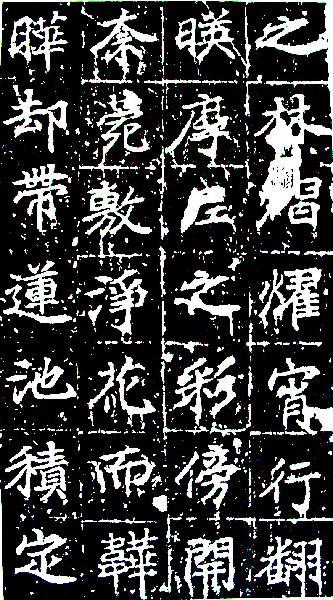 之林熠燿宵行翻
暎摩尼之彩傍開
柰菀敷淨花而韡
曄却帶蓮池積定